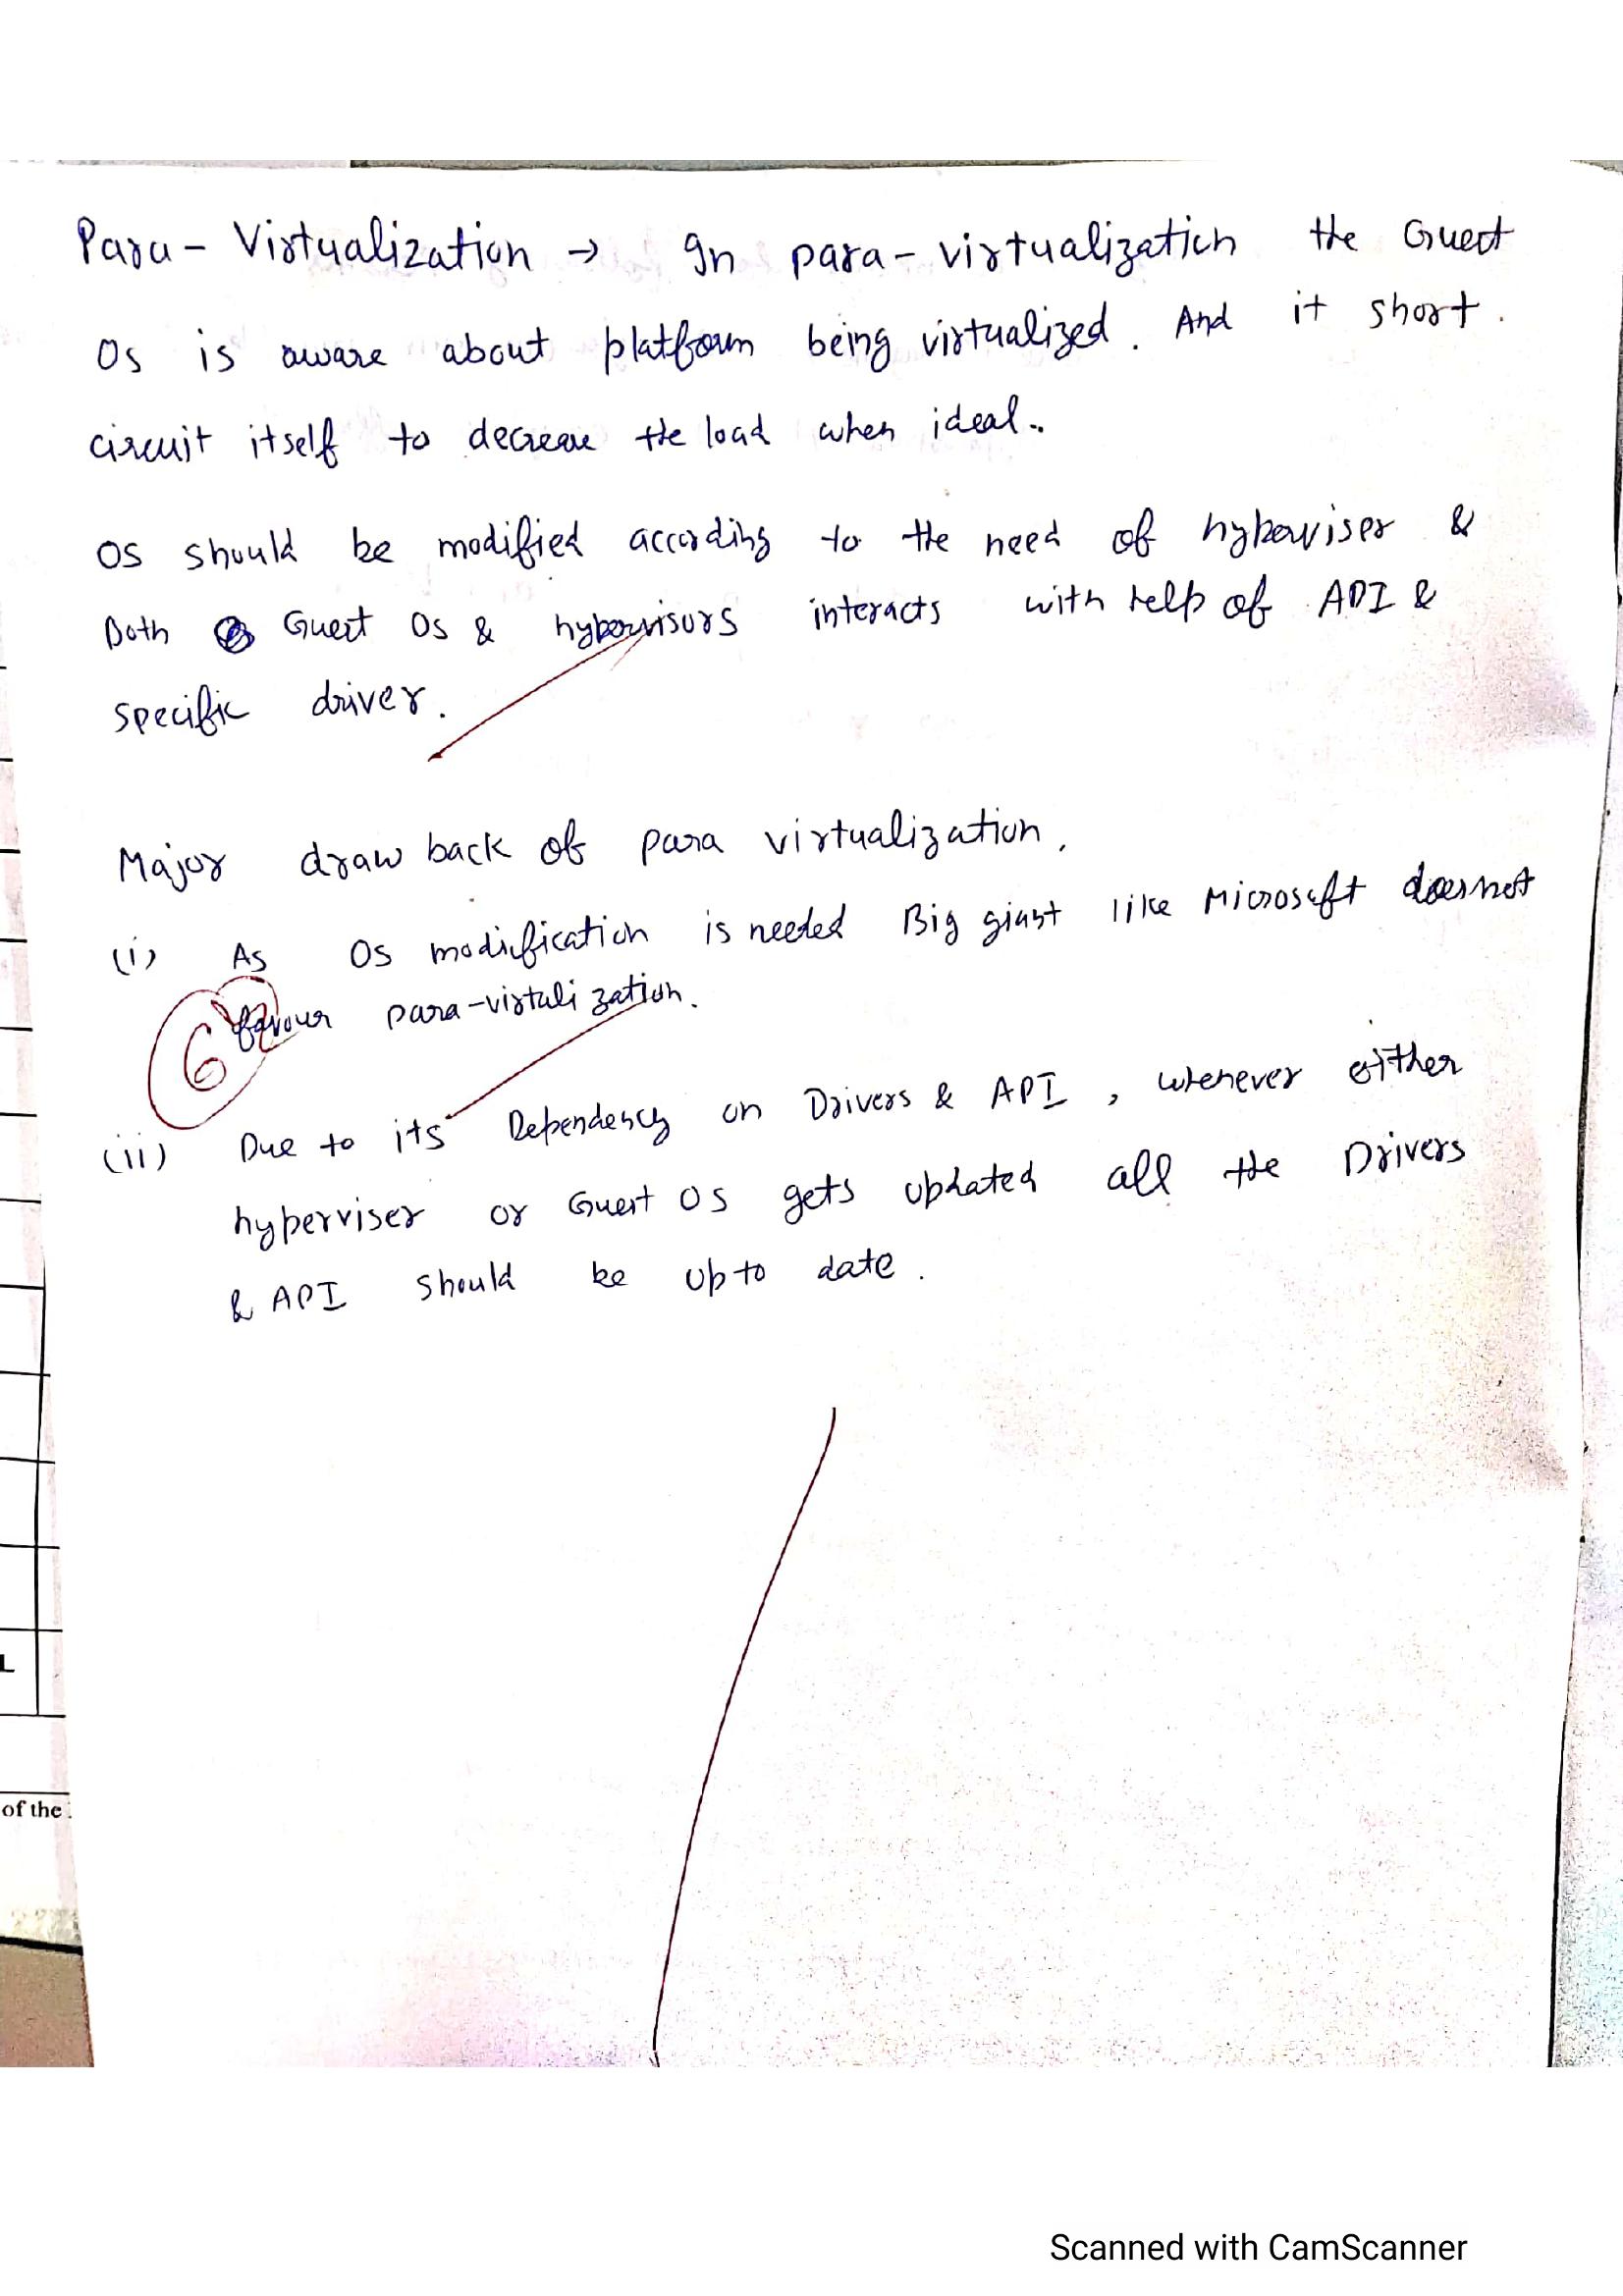 Para - Virtualization → In para - virtualization the Guest
OS is aware about platform being virtualized. And it short.
circuit itself to decrease the load when ideal..
OS should be modified according to the need of hyperviser &
Both Guest OS & hypervisors interacts with help of API &
specific driver.
Major draw back of para virtualization.
(i) As OS modification is needed Big giant like Microsoft doesnot
favour para-virtulization.
6
(ii) Due to its Dependency on Drivers & API, whenever either
hyperviser or Guest OS gets updated all the Drivers
& API should be upto date.
L
of the
Scanned with CamScanner